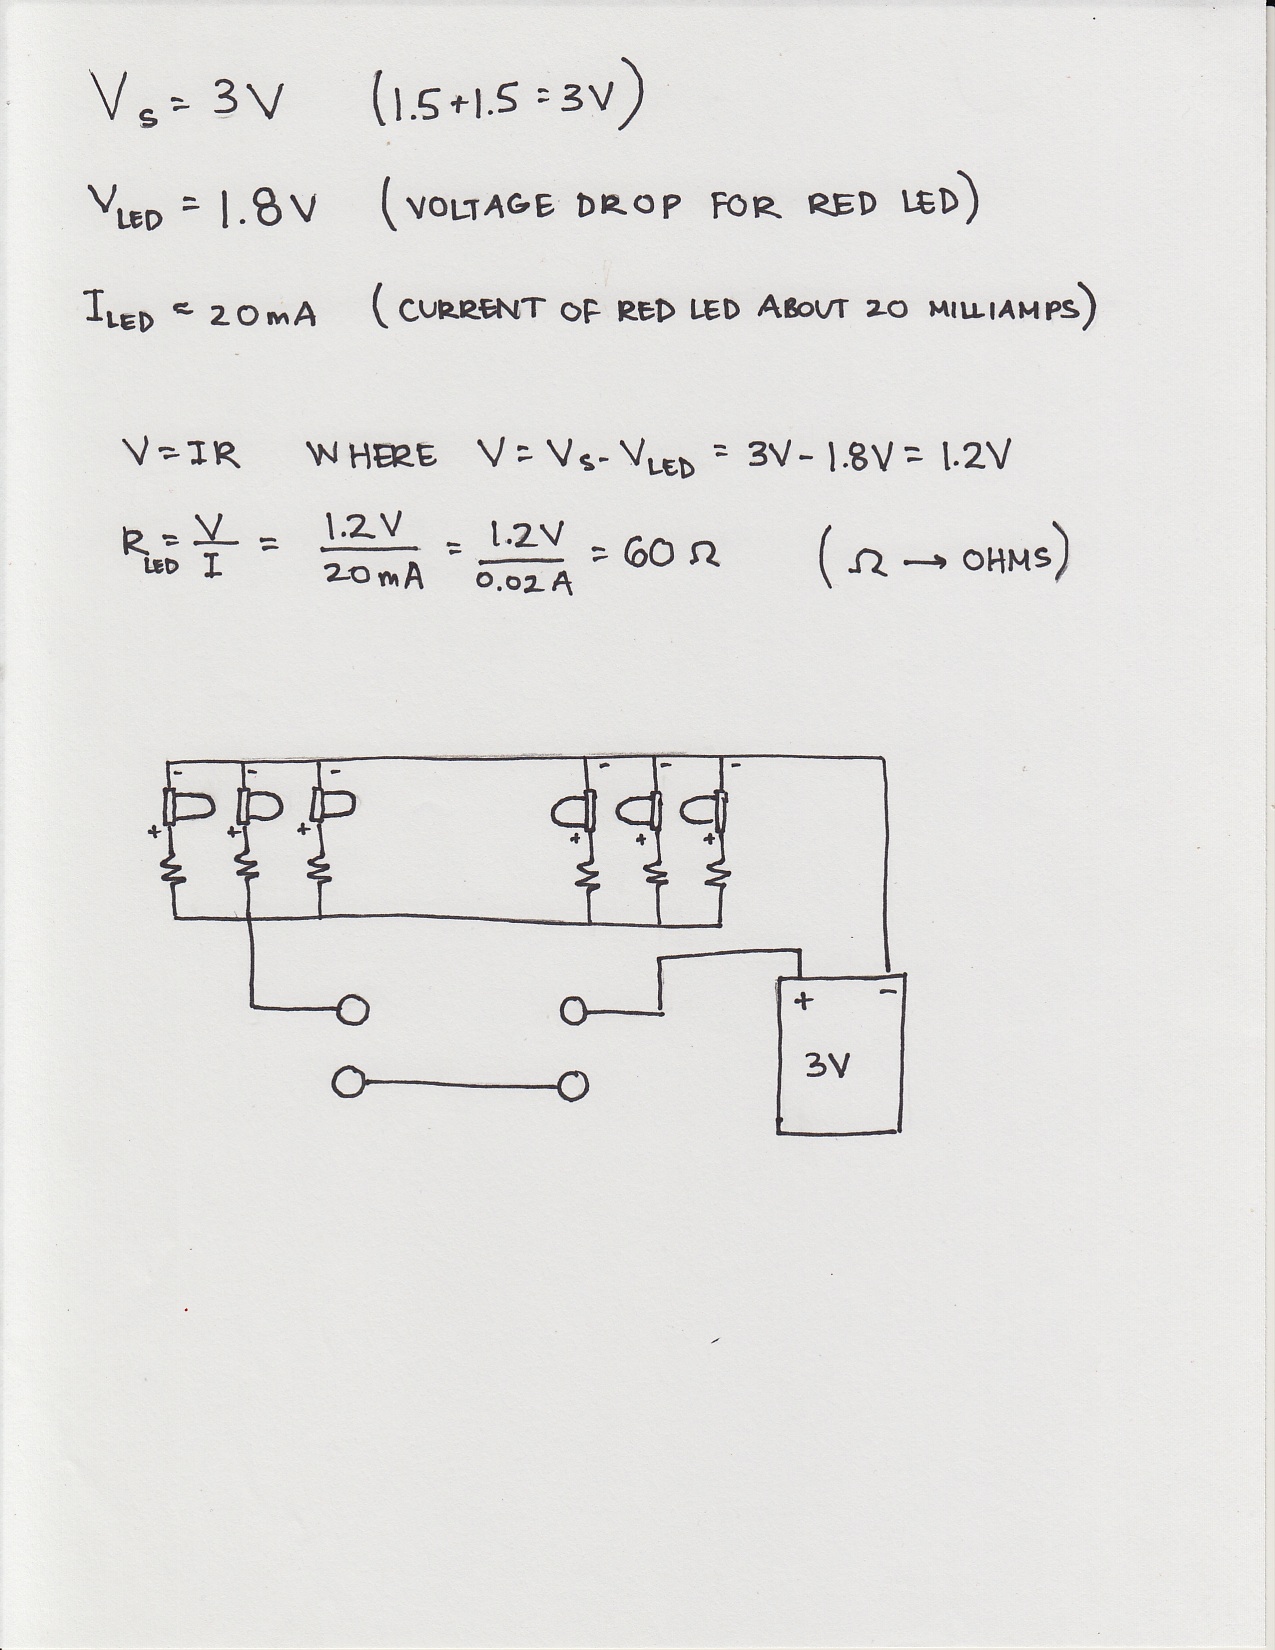 Vs = 3V (1.5+1.5=3V)
VLED = 1.8V (VOLTAGE DROP FOR RED LED)
ILED ≈ 20mA (CURRENT OF RED LED ABOUT 20 MILLIAMPS)
V=IR WHERE V=Vs-VLED = 3V-1.8V= 1.2V
RLED = V/I = 1.2V/20mA = 1.2V/0.02A = 60Ω (Ω → OHMS)
- - - - - -
+ + + + + +
+ -
3V